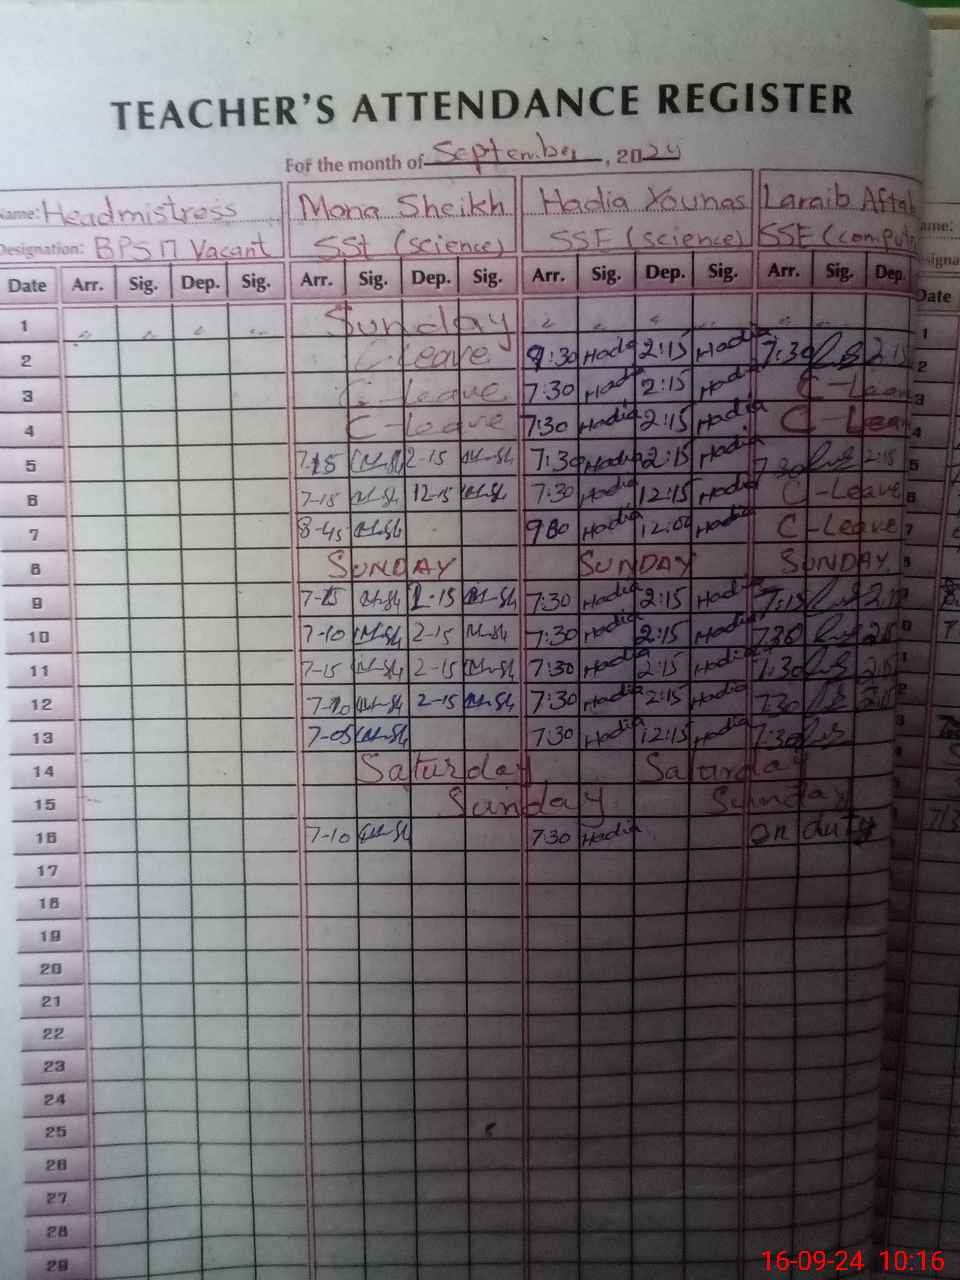 TEACHER'S ATTENDANCE REGISTER
For the month of September, 2024
Name: Headmistress Mona Sheikh Hadia Younas Laraib Aftab
Designation: BPS 17 Vacant SSt (science) SSE (science) SSE (computer
Date Arr. Sig. Dep. Sig. Arr. Sig. Dep. Sig. Arr. Sig. Dep. Sig. Arr. Sig. Dep. Date
1 Sunday
2 C-Leave 7:30 Hadia 2:15 Hadia 7:30 2:15
3 C-Leave 7:30 Hadia 2:15 Hadia C-Leave
4 C-Leave 7:30 Hadia 2:15 Hadia C-Leave
5 7-15 2-15 7:30 Hadia 2:15 Hadia 7:30 2:15
6 7-15 12-15 7:30 Hadia 12:15 Hadia C-Leave
7 8-45 Hadia Hadia C-Leave
8 SUNDAY SUNDAY SUNDAY
9 7-15 2-15 7:30 Hadia 2:15 Hadia 7:15
10 7-10 2-15 7:30 Hadia 2:15 Hadia 7:30
11 7-15 2-15 7:30 Hadia 2:15 Hadia 7:30 2:15
12 7-10 2-15 7:30 Hadia 2:15 Hadia 7:30
13 7-05 7:30 Hadia 12:15 Hadia 7:30
14 Saturday Saturday
15 Sunday Sunday
16 7-10 7:30 Hadia on duty
17
18
19
20
21
22
23
24
25
26
27
28
29
16-09-24 10:16